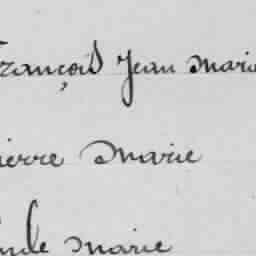 François Jean Marie
ierre Marie
Marie